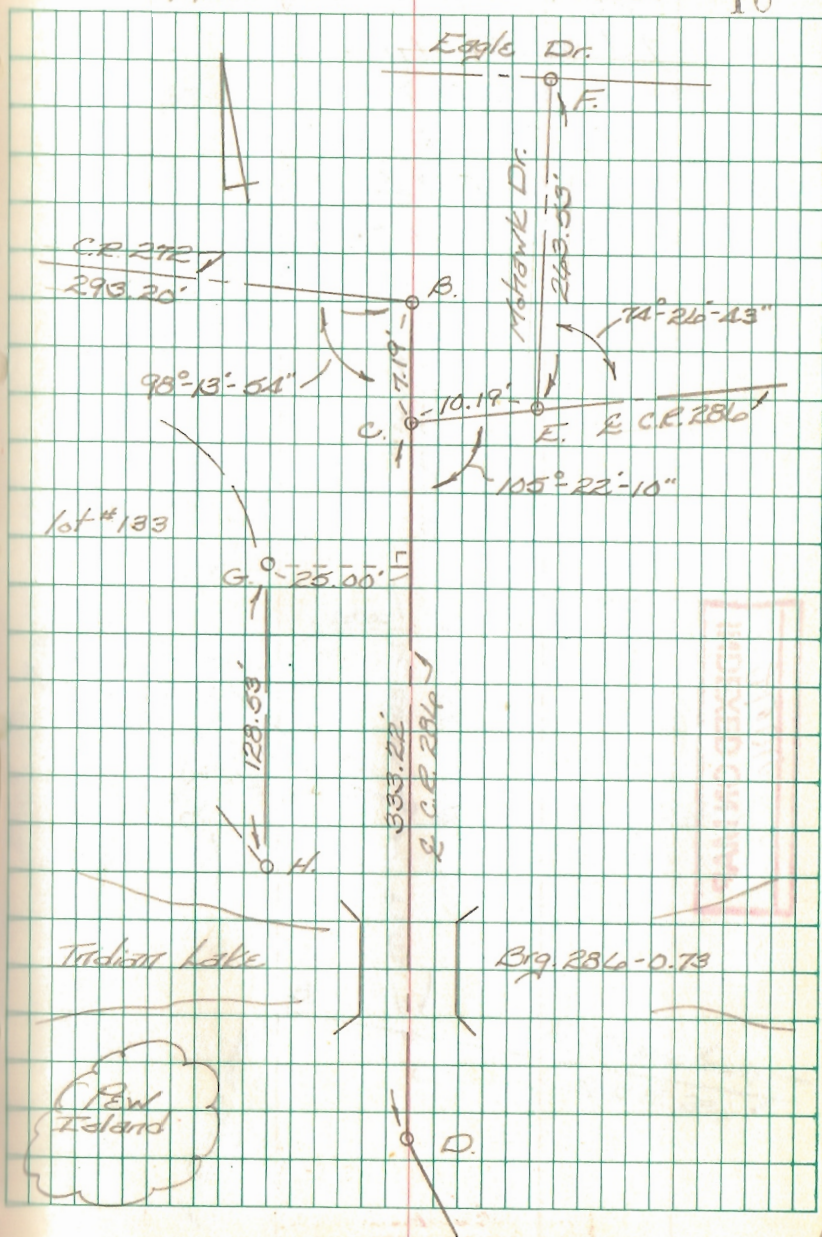 10
Eagle Dr.
F.
Mohawk Dr.
263.53'
C.R. 272
293.20'
B.
74°-26'-43"
98°-13'-54"
7.19'
10.19'
C.
E.
℄ C.R. 286
105°-22'-10"
lot #133
G.
25.00'
128.53'
333.22'
℄ C.R. 286
INDEXED ON MAP
H.
Indian Lake
Brg. 286-0.73
Pew
Island
D.